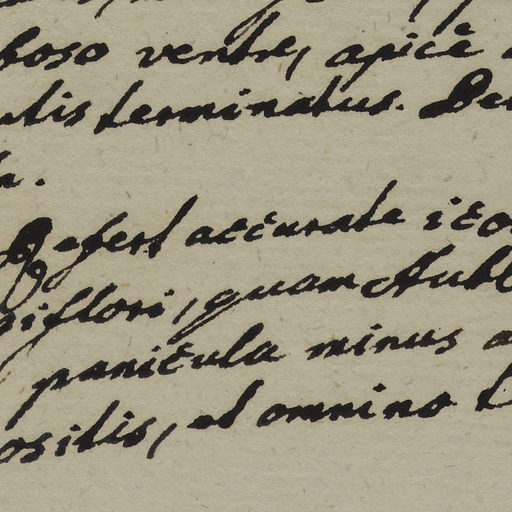 boso ventre, apice
utis terminatus.
Refert accurate ico
iflori, quam Aubl
panicula minus a
ositis, et omnino